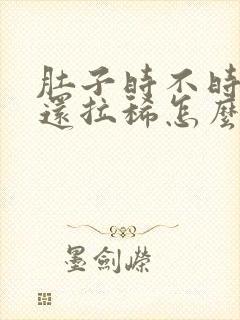 肚子時不時
還拉稀怎麼
墨劍嶸